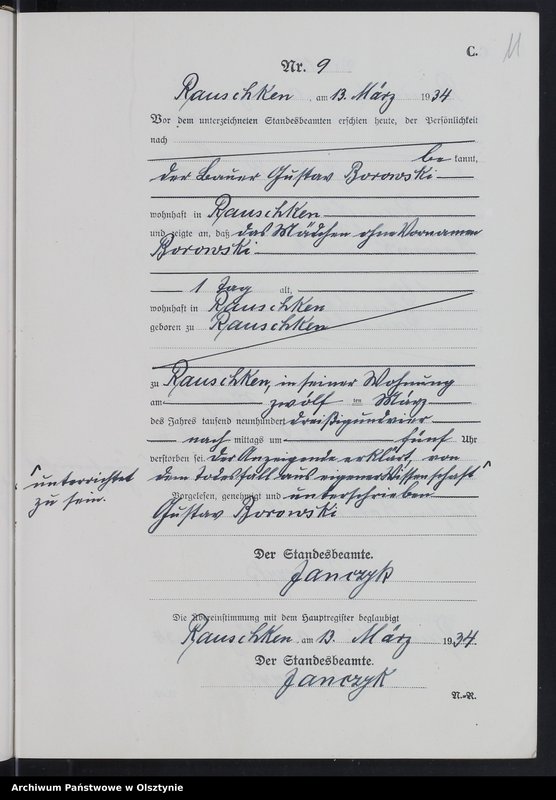 C.
11
Nr. 9
Rauschken, am 13. März 1934
Vor dem unterzeichneten Standesbeamten erschien heute, der Persönlichkeit
nach
be kannt,
der Bauer Gustav Borowski
wohnhaft in Rauschken
und zeigte an, daß das Mädchen ohne Vornamen
Borowski
1 Tag alt,
wohnhaft in Rauschken
geboren zu Rauschken
zu Rauschken, in seiner Wohnung
am zwölf ten März
des Jahres tausend neunhundert dreißigundvier
nach mittags um fünf Uhr
verstorben sei. Der Anzeigende erklärt, von
dem Todesfall aus eigener Wissenschaft
unterrichtet
zu sein.
Vorgelesen, genehmigt und unterschrieben
Gustav Borowski
Der Standesbeamte.
Janczyk
Die Übereinstimmung mit dem Hauptregister beglaubigt
Rauschken, am 13. März 1934.
Der Standesbeamte.
Janczyk
N.-R.
Archiwum Państwowe w Olsztynie